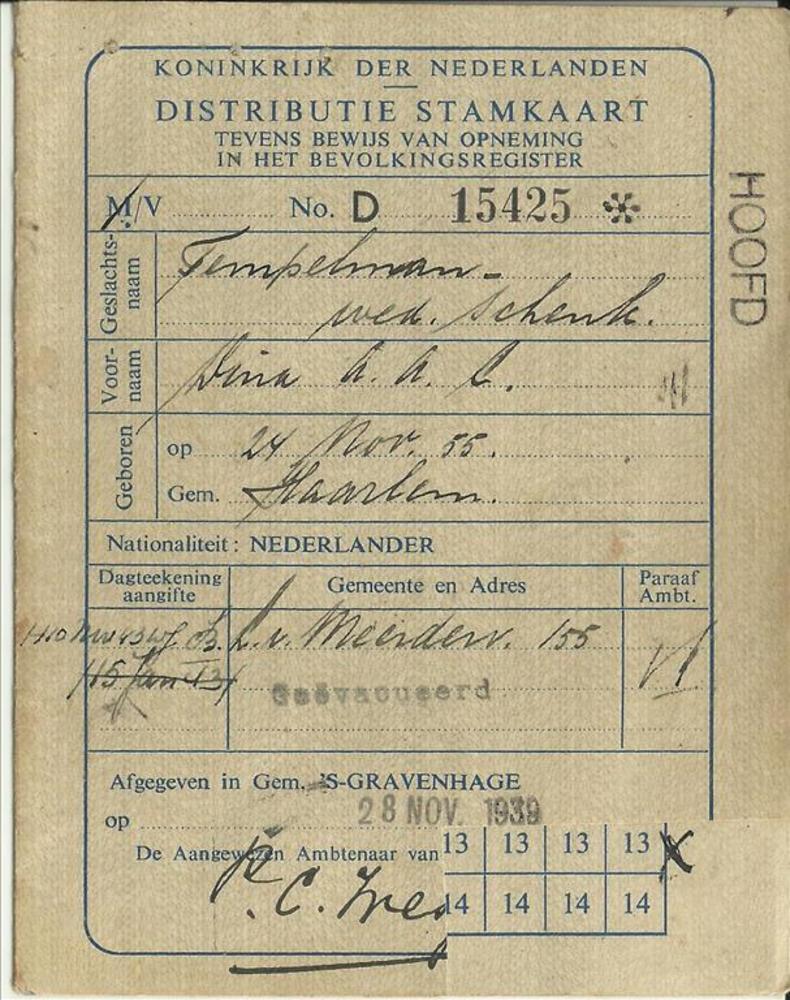 KONINKRIJK DER NEDERLANDEN
DISTRIBUTIE STAMKAART
TEVENS BEWIJS VAN OPNEMING
IN HET BEVOLKINGSREGISTER
M/V No. D 15425 *
HOOFD
Geslachts-
naam
Tempelman-
wed. Schenk.
Voor-
naam
Dina A. A. C.
Geboren
op 24 Nov. 55.
Gem. Haarlem.
Nationaliteit: NEDERLANDER
Dagteekening
aangifte
Gemeente en Adres
Paraaf
Ambt.
L. v. Meerderv. 155
15 Jan
Geëvacueerd
Afgegeven in Gem. 'S-GRAVENHAGE
op 28 NOV. 1939
De Aangewezen Ambtenaar van
13 13 13 13 X
14 14 14 14